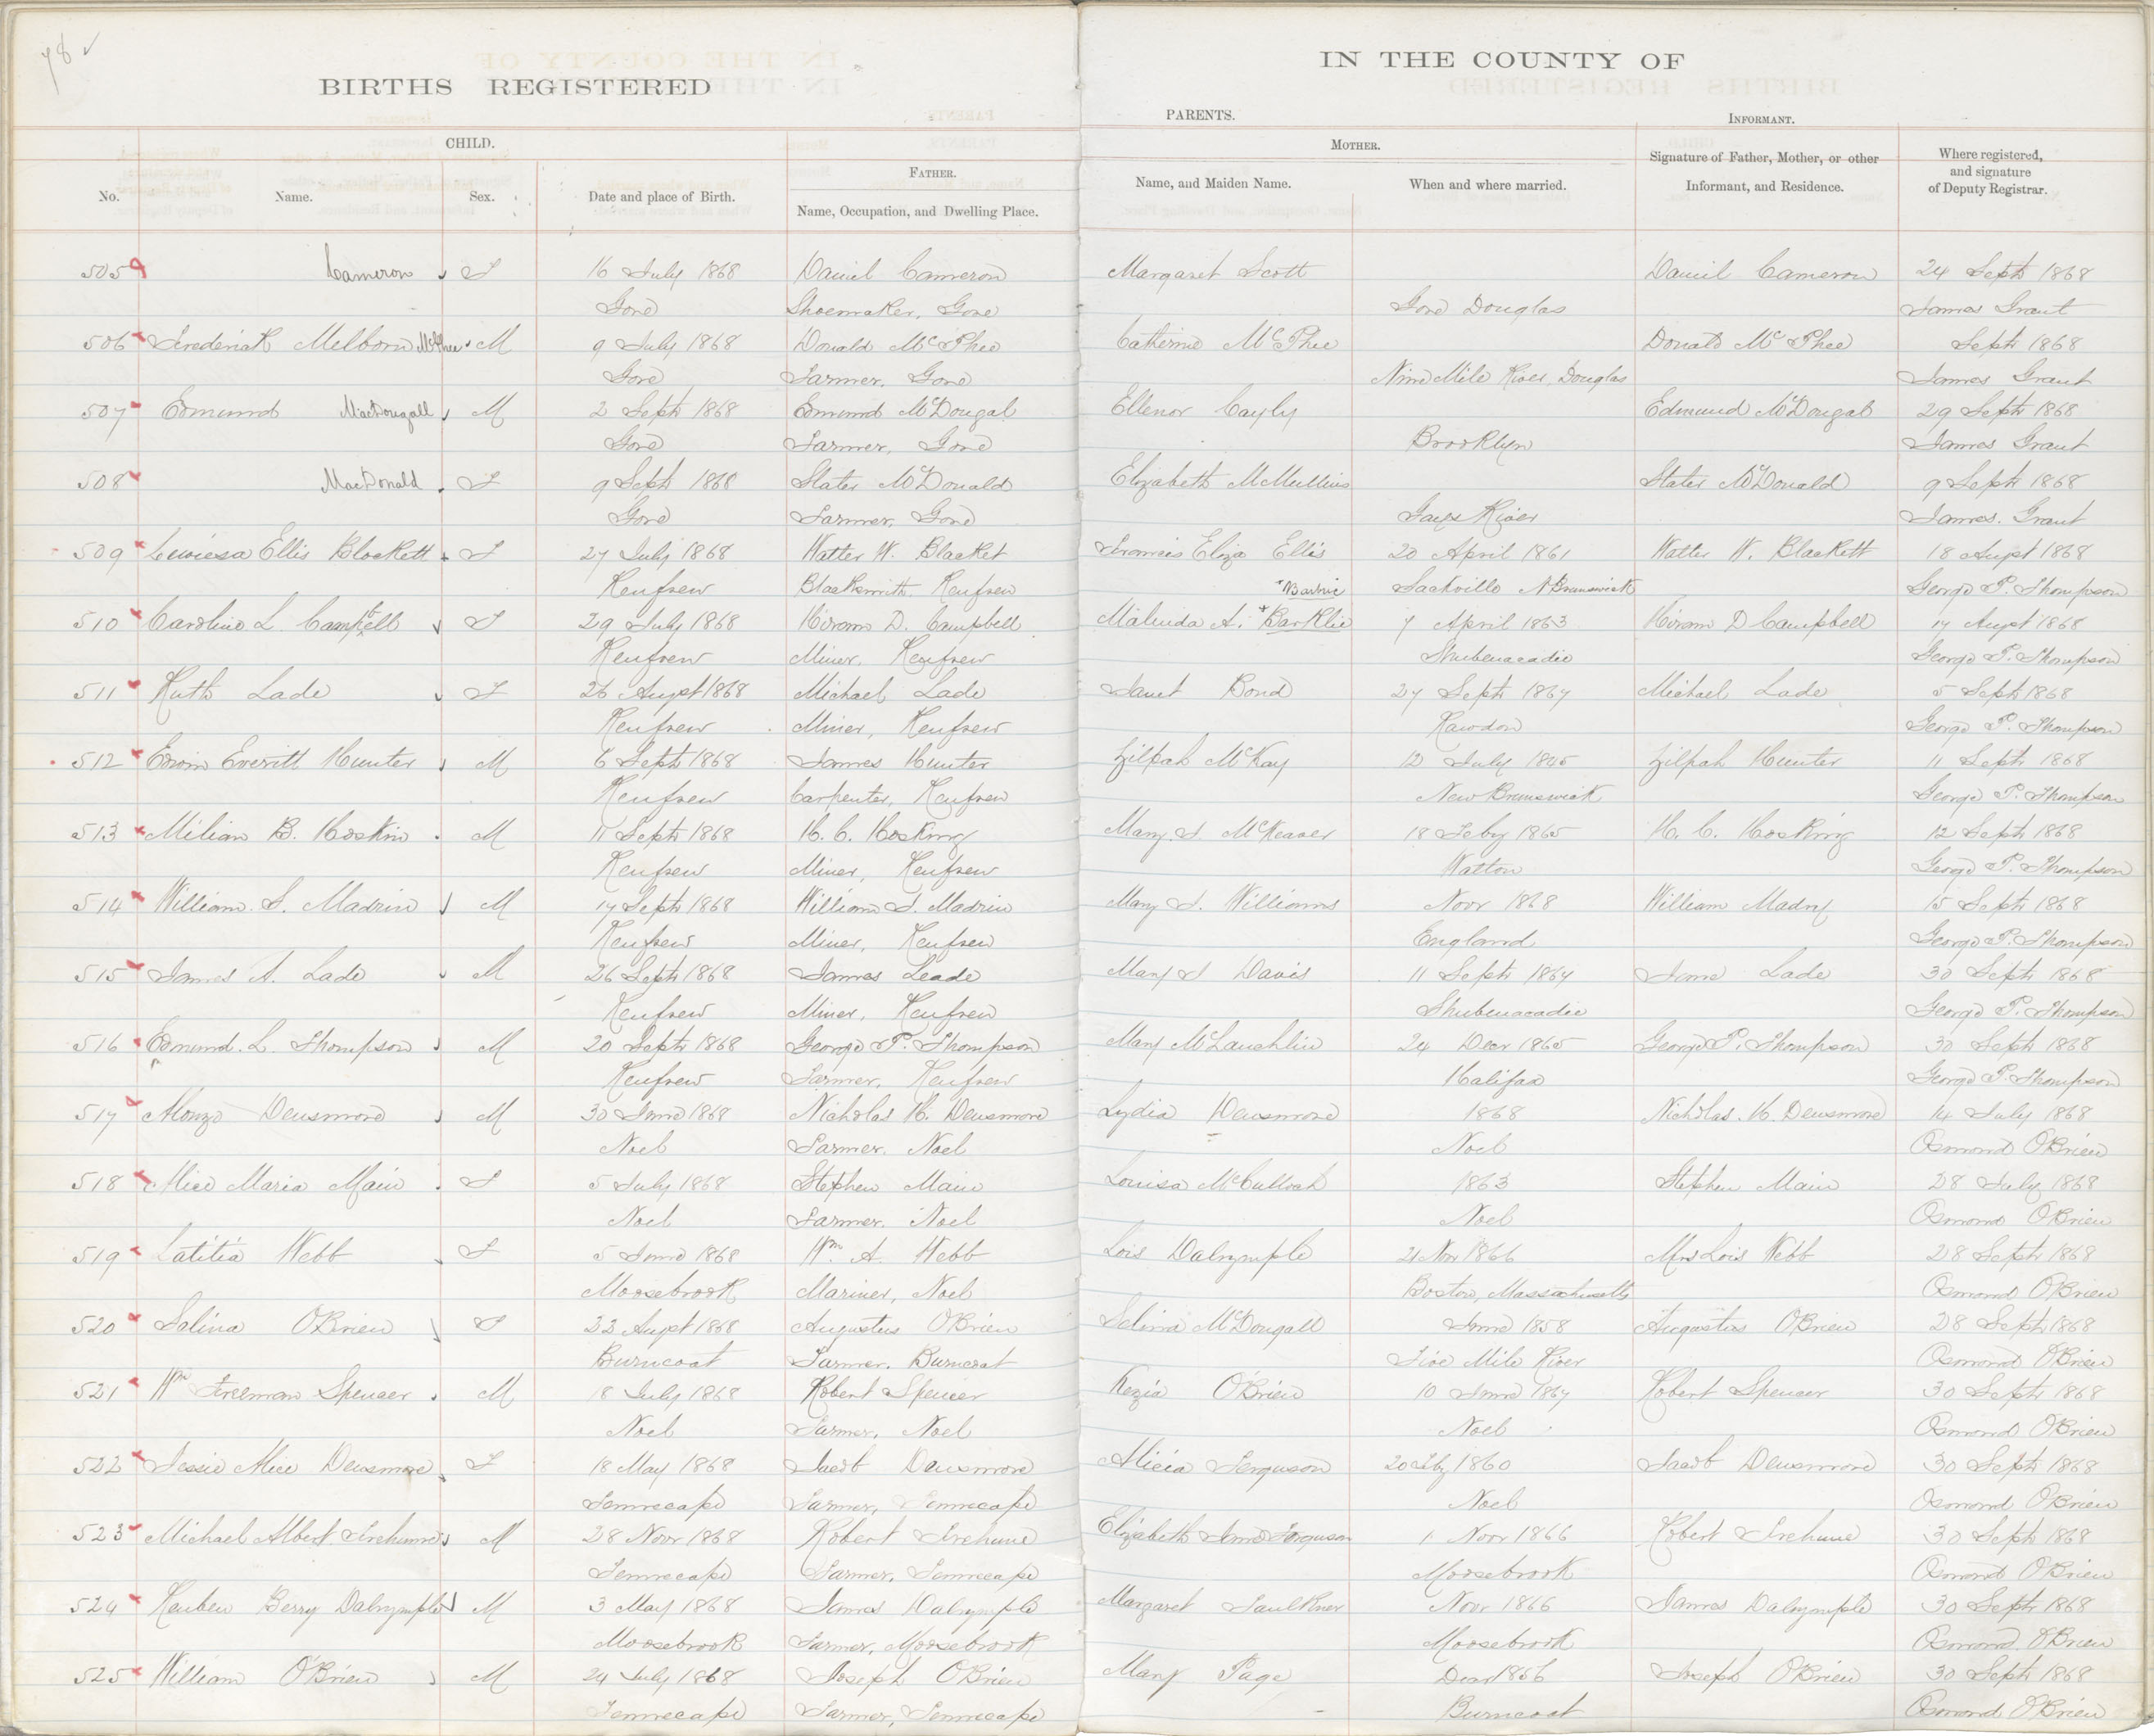 78 ✓
BIRTHS REGISTERED IN THE COUNTY OF
PARENTS.
CHILD. MOTHER. INFORMANT.
No. Name. Sex. Date and place of Birth. FATHER. Name, Occupation, and Dwelling Place. Name, and Maiden Name. When and where married. Signature of Father, Mother, or other Informant, and Residence. Where registered, and signature of Deputy Registrar.
505 Cameron F 16 July 1868 Daniel Cameron Margaret Scott Daniel Cameron 24 Septr 1868
Gore Shoemaker, Gore Gore Douglas James Grant
506 Frederick Melborn McPhee M 9 July 1868 Donald McPhee Catherine McPhee Donald McPhee Septr 1868
Gore Farmer, Gore Nine Mile River, Douglas James Grant
507 Edmund MacDougall M 2 Septr 1868 Edmund McDougal Ellenor Cayly Edmund McDougal 29 Septr 1868
Gore Farmer, Gore Brooklyn James Grant
508 MacDonald F 9 Septr 1868 Slater McDonald Elizabeth McMullins Slater McDonald 9 Septr 1868
Gore Farmer, Gore Gays River James Grant
509 Ellis Blackett F 27 July 1868 Walter W. Blacket Francis Eliza Ellis 20 April 1861 Walter W. Blackett 18 Augst 1868
Renfrew Blacksmith, Renfrew Sackville N Brunswick George P. Thompson
510 Caroline L. Campbell F 29 July 1868 Hiram D. Campbell Malinda A. *Barklie 7 April 1863 Hiram D Campbell 17 Augst 1868
Renfrew Miner, Renfrew Shubenacadie George P. Thompson
511 Ruth Lade F 26 Augst 1868 Michael Lade Janet Bond 27 Septr 1867 Michael Lade 5 Septr 1868
Renfrew Miner, Renfrew Rawdon George P. Thompson
512 Edwin Everitt Hunter M 6 Septr 1868 James Hunter Zilpah McKay 12 July 1845 Zilpah Hunter 11 Septr 1868
Renfrew Carpenter, Renfrew New Brunswick George P. Thompson
513 Milian B. Hoskin M 11 Septr 1868 H. C. Hosking Mary J. McKeaver 18 Feby 1865 H. C. Hosking 12 Septr 1868
Renfrew Miner, Renfrew Walton George P. Thompson
514 William S. Madrin M 14 Septr 1868 William J. Madrin Mary J. Williams Novr 1868 William 15 Septr 1868
Renfrew Miner, Renfrew England George P. Thompson
515 James A. Lade M 26 Septr 1868 James Leade Mary J Davis 11 Septr 1864 Lade 30 Septr 1868
Renfrew Miner, Renfrew Shubenacadie George P. Thompson
516 Edmund L. Thompson M 20 Septr 1868 George P. Thompson Mary McLauchlin 24 Decr 1865 George P. Thompson 30 Septr 1868
Renfrew Farmer, Renfrew Halifax George P. Thompson
517 Alonzo Densmore M 30 June 1868 Nicholas H. Densmore Lydia Densmore 1868 Nicholas H. Densmore 14 July 1868
Noel Farmer, Noel Noel Osmond O'Brien
518 Alice Maria Main F 5 July 1868 Stephen Main Louisa McCulloch 1863 Stephen Main 28 July 1868
Noel Farmer, Noel Noel Osmond O'Brien
519 Latitia Webb F 5 June 1868 Wm A. Webb Lois Dalrymple 21 Nov 1866 Mrs Lois Webb 28 Septr 1868
Moosebrook Mariner, Noel Boston, Massachusetts Osmond O'Brien
520 Salina O'Brien F 22 Augst 1868 Augustus O'Brien Selina McDougall June 1858 Augustus O'Brien 28 Septr 1868
Burncoat Farmer, Burncoat Five Mile River Osmond O'Brien
521 Wm Freeman Spencer M 18 July 1868 Robert Spencer Kezia O'Brien 10 June 1867 Robert Spencer 30 Septr 1868
Noel Farmer, Noel Noel Osmond O'Brien
522 Jessie Alice Densmore F 18 May 1868 Jacob Densmore Alicia Ferguson 20 Feby 1860 Jacob Densmore 30 Septr 1868
Tennecape Farmer, Tennecape Noel Osmond O'Brien
523 Michael Albert Trehune M 28 Novr 1868 Robert Trehune Elizabeth Jane Ferguson 1 Novr 1866 Robert Trehune 30 Septr 1868
Tennecape Farmer, Tennecape Moosebrook Osmond O'Brien
524 Reuben Berry Dalrymple M 3 May 1868 James Dalrymple Margaret Faulkner Novr 1866 James Dalrymple 30 Septr 1868
Moosebrook Farmer, Moosebrook Moosebrook Osmond O'Brien
525 William O'Brien M 24 July 1868 Joseph O'Brien Mary Page Decr 1856 Joseph O'Brien 30 Septr 1868
Tennecape Farmer, Tennecape Burncoat Osmond O'Brien